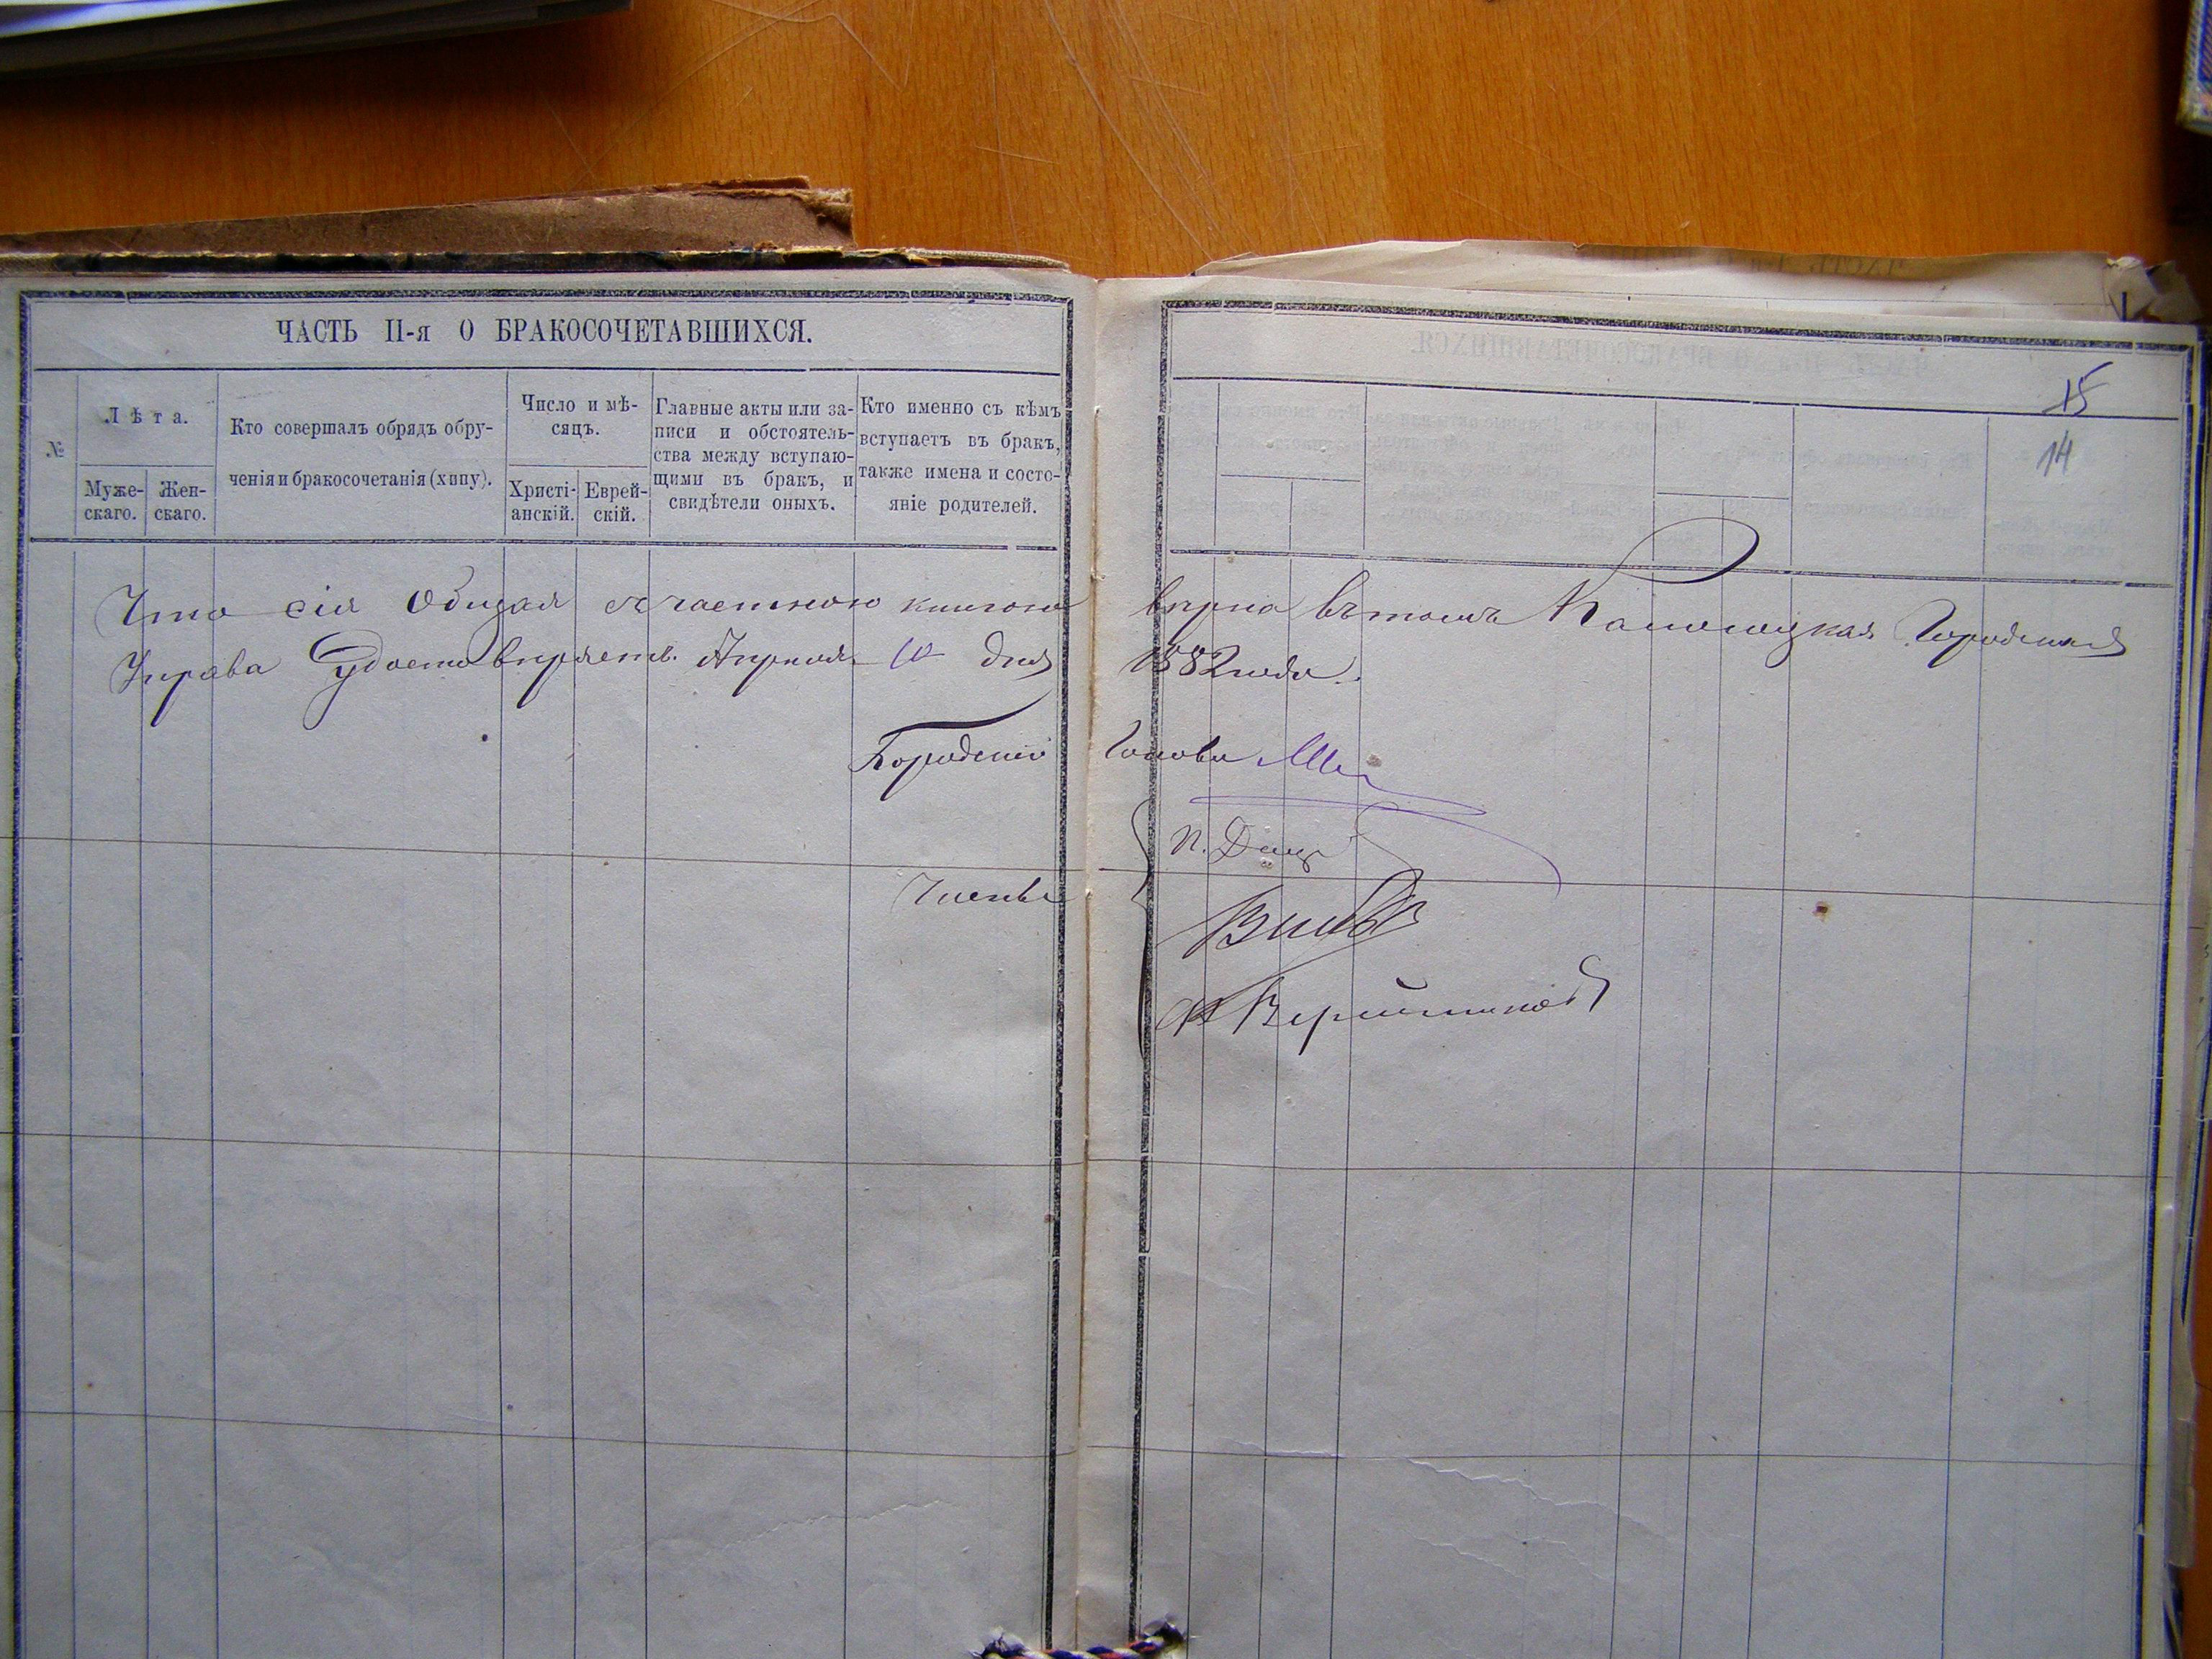 ЧАСТЬ II-я О БРАКОСОЧЕТАВШИХСЯ.
№
Лѣта.
Муже-
скаго.
Жен-
скаго.
Кто совершалъ обрядъ обру-
ченія и бракосочетанія (хипу).
Число и мѣ-
сяцъ.
Христі-
анскій.
Еврей-
скій.
Главные акты или за-
писи и обстоятель-
ства между вступаю-
щими въ бракъ, и
свидѣтели оныхъ.
Кто именно съ кѣмъ
вступаетъ въ бракъ,
также имена и состо-
яніе родителей.
15
14
Что сія общая съ частною книгою вѣрна въ томъ Городская
Управа удостовѣряетъ. Апрѣля 10 дня 1882 года.
Городской Голова
Члены